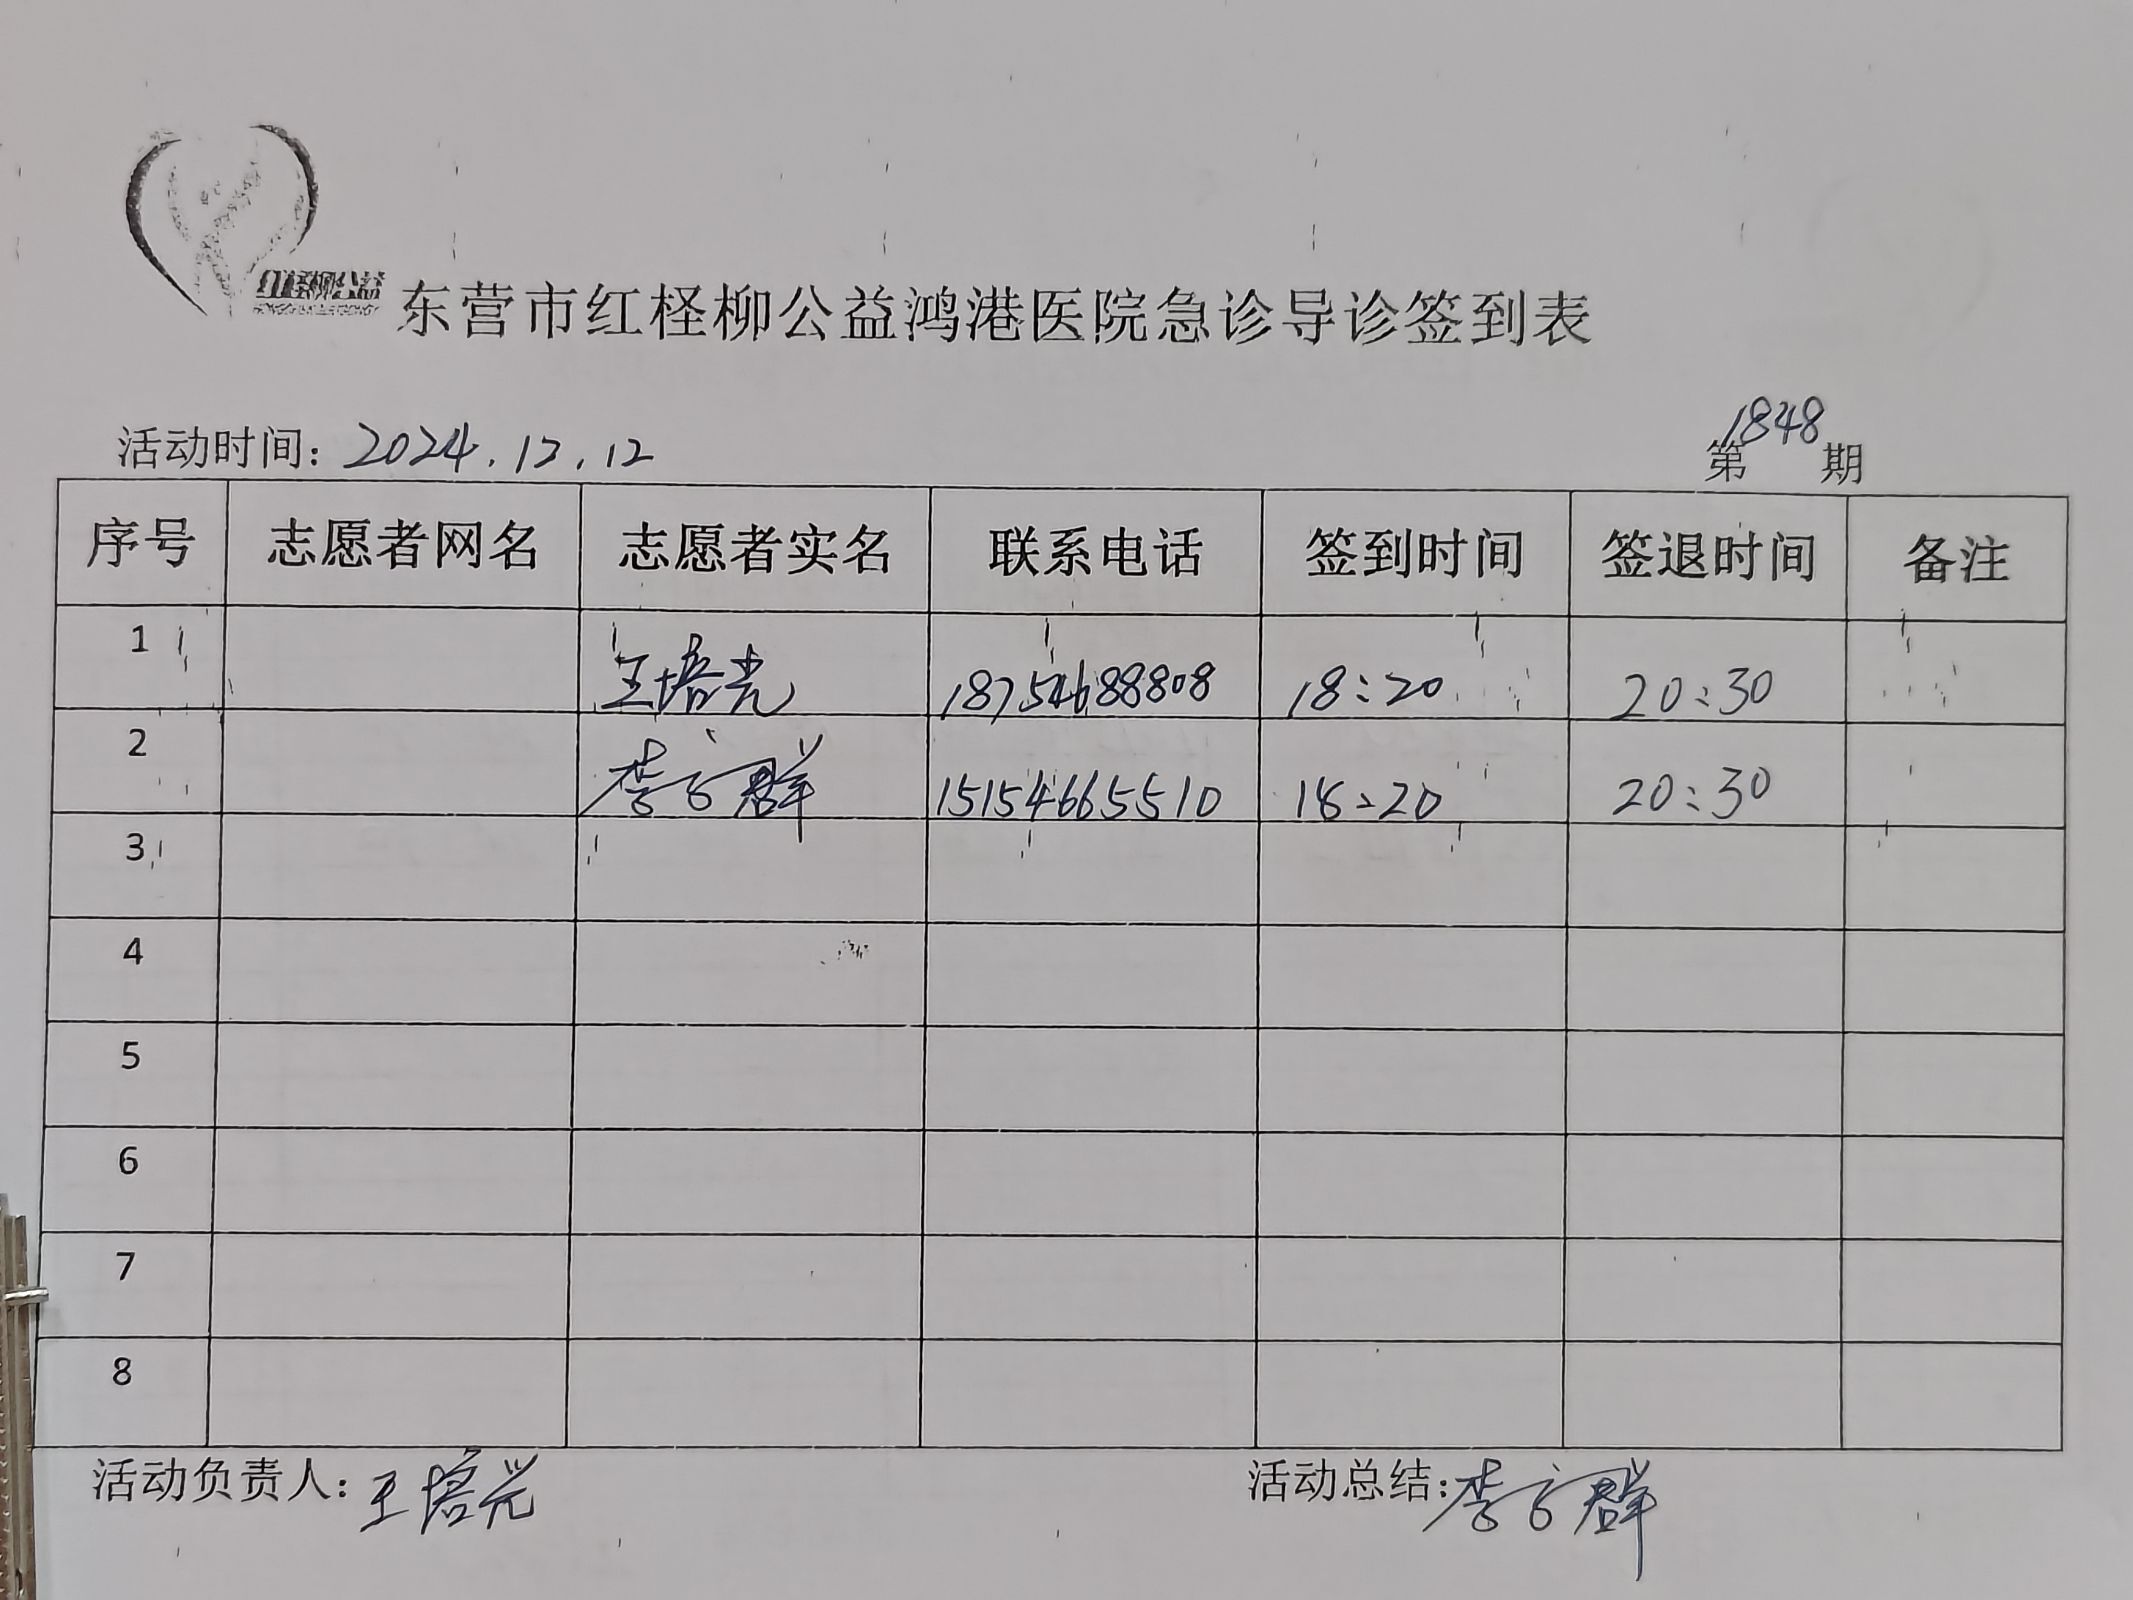 红柽柳公益
东营市红柽柳公益鸿港医院急诊导诊签到表
活动时间: 2024.12.12 第1848期
序号 志愿者网名 志愿者实名 联系电话 签到时间 签退时间 备注
1 王培光 18754688808 18:20 20:30
2 李 群 15154665510 18:20 20:30
3
4
5
6
7
8
活动负责人: 王培光 活动总结: 李 群